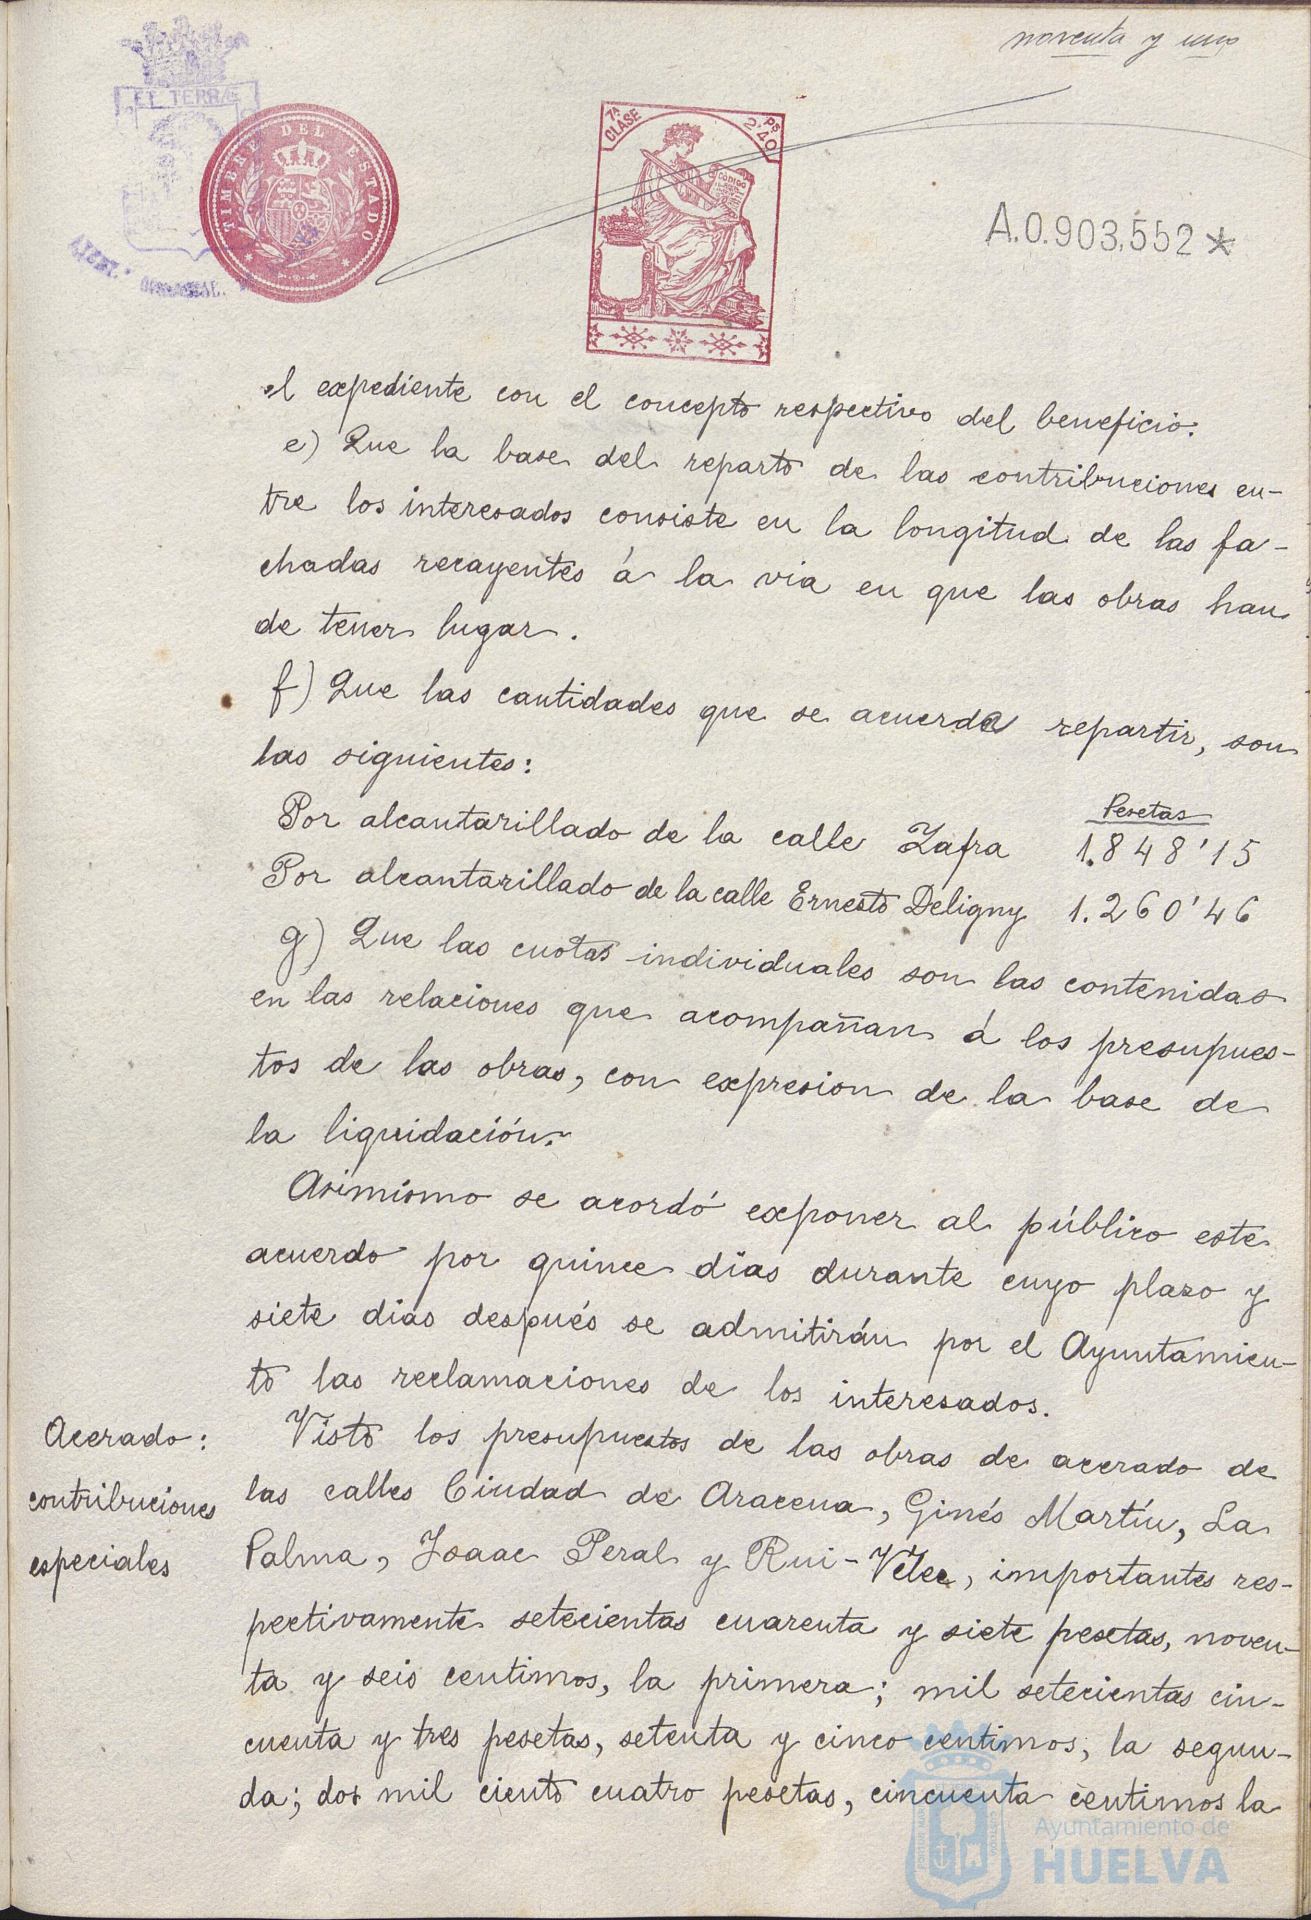 noventa y uno
TIMBRE DEL ESTADO
7ª CLASE
2'40 PS
CODIGO
A.0.903,552*
el expediente con el concepto respectivo del beneficio.
e) Que la base del reparto de las contribuciones en-
tre los interesados consiste en la longitud de las fa-
chadas recayentes á la via en que las obras han
de tener lugar.
f) Que las cantidades que se acuerda repartir, son
las siguientes:
Pesetas
Por alcantarillado de la calle Zafra 1.848'15
Por alcantarillado de la calle Ernesto Deligny 1.260'46
g) Que las cuotas individuales son las contenidas
en las relaciones que acompañan á los presupues-
tos de las obras, con expresion de la base de
la liquidación.
Asimismo se acordó exponer al público este
acuerdo por quince dias durante cuyo plazo y
siete dias después se admitirán por el Ayuntamien-
to las reclamaciones de los interesados.
Acerado:
contribuciones
especiales
Visto los presupuestos de las obras de acerado de
las calles Ciudad de Aracena, Ginés Martín, La
Palma, Isaac Peral y Rui-Velez, importantes res-
pectivamente setecientas cuarenta y siete pesetas, noven-
ta y seis centimos, la primera; mil setecientas cin-
cuenta y tres pesetas, setenta y cinco centimos, la segun-
da; dos mil ciento cuatro pesetas, cincuenta centimos la
Ayuntamiento de
HUELVA